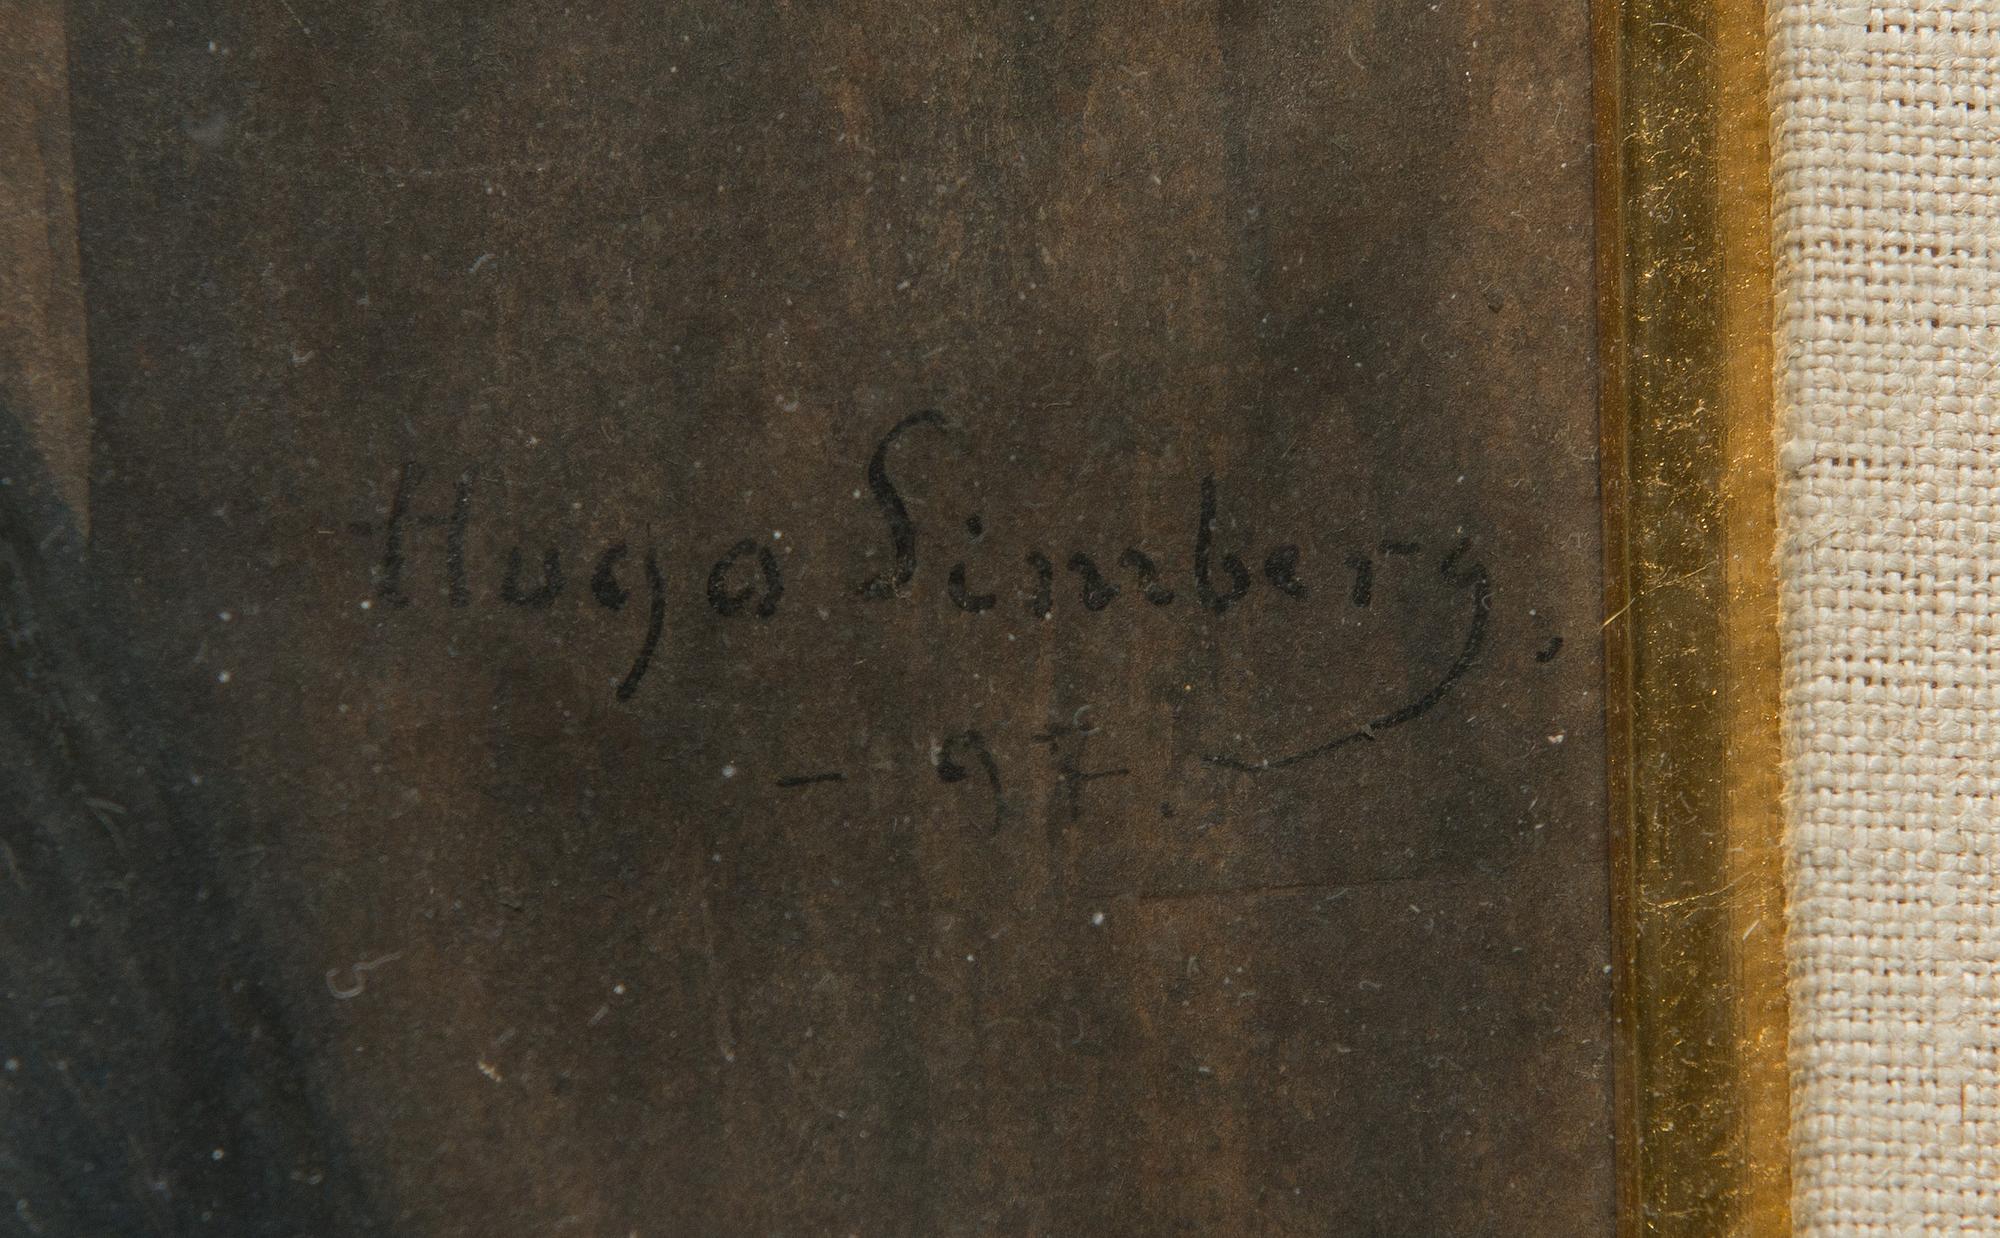 Hugo Simberg.
- 97.